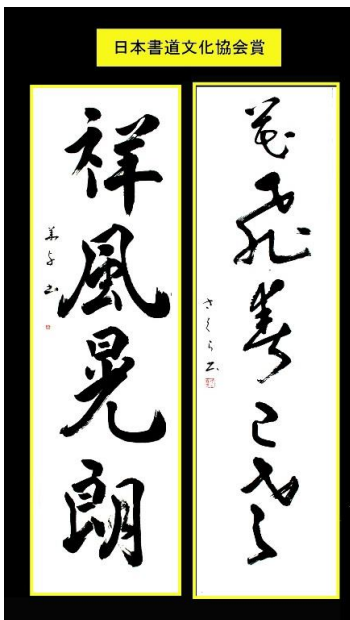 日本書道文化協会賞
花飛春已老
さくら書
祥風晃朗
書